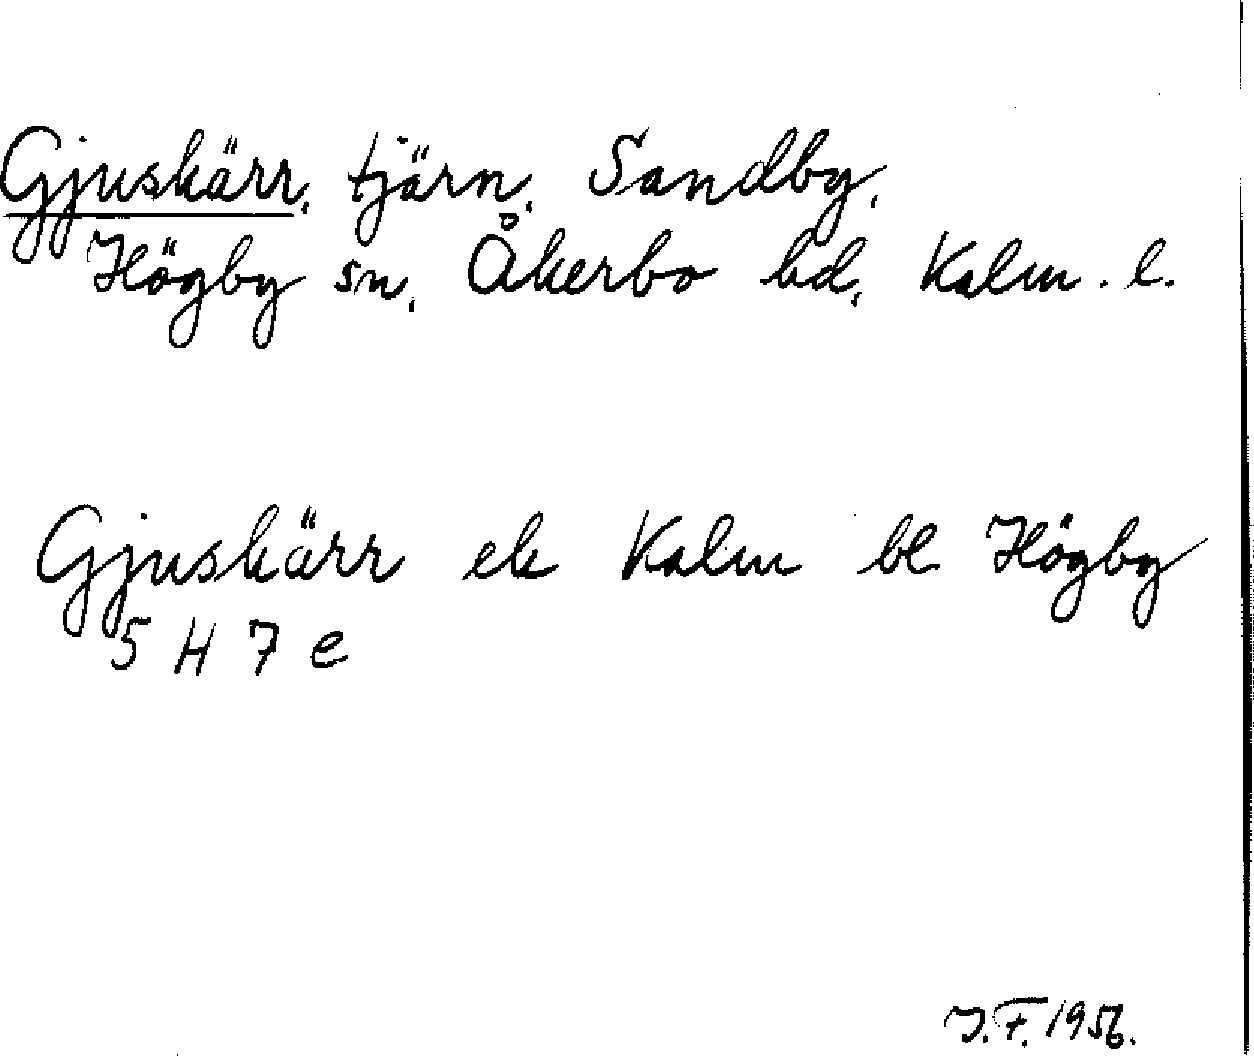 Gjuskärr, tjärn, Sandby,
Högby sn, Åkerbo hd, Kalm. l.
Gjuskärr ek Kalm bl Högby
5 H 7 e
J.F. 1956.